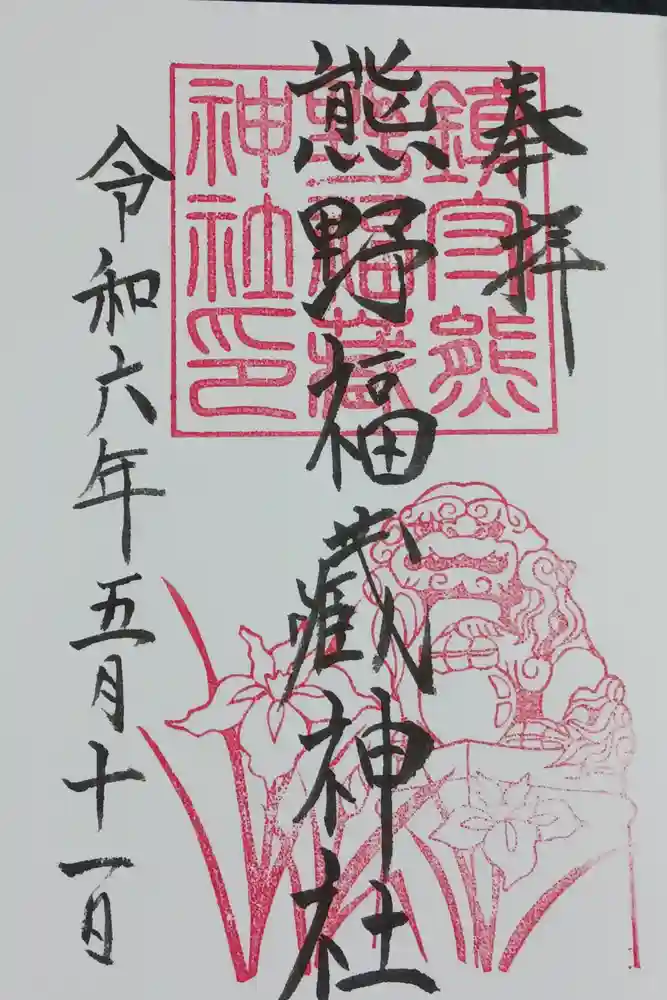 奉拝
熊野福蔵神社
令和六年五月十一日
鎮守熊
野福藏
神社印